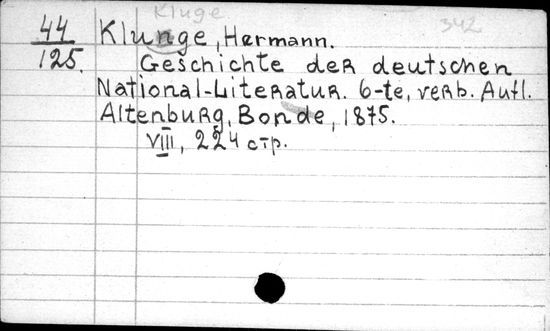 Kluge
342
44 Klunge, Hermann.
125. Geschichte der deutschen
National-Literatur. 6-te, verb. Aufl.
Altenburg, Bonde, 1875.
VIII, 224 стр.